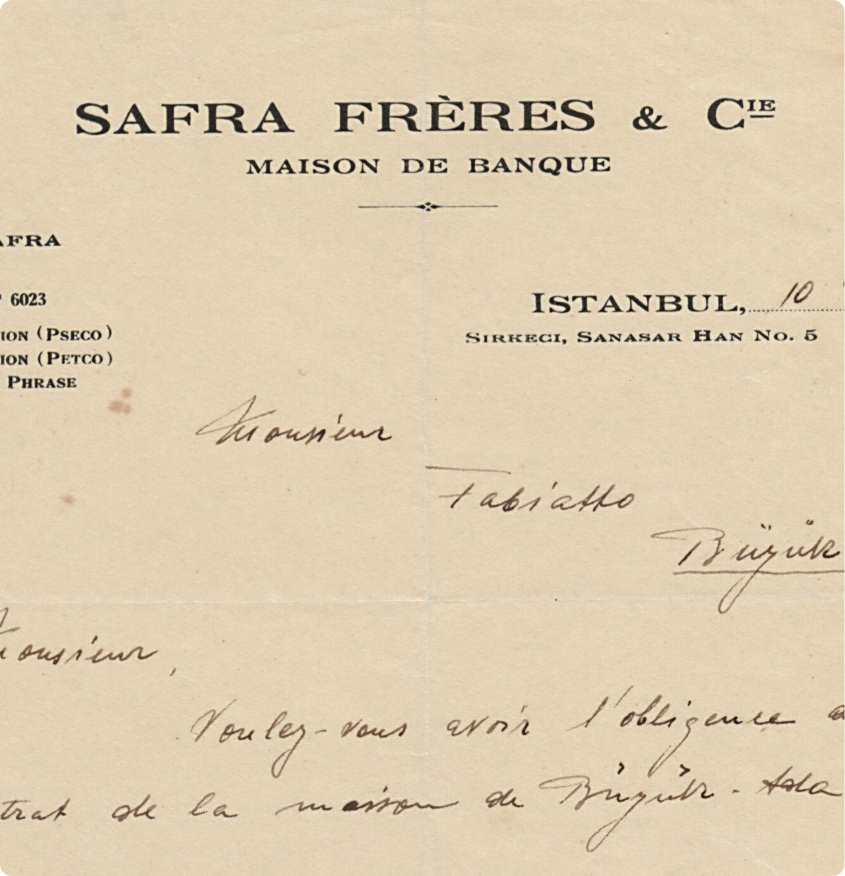 SAFRA FRÈRES & CIE
MAISON DE BANQUE
AFRA
6023
ION (PSECO)
ION (PETCO)
PHRASE
ISTANBUL, 10
SIRKECI, SANASAR HAN NO. 5
Monsieur
Fabiatto
Büyük
Monsieur,
Voulez-vous avoir l'obligence
trat de la maison de Büyük-Ada